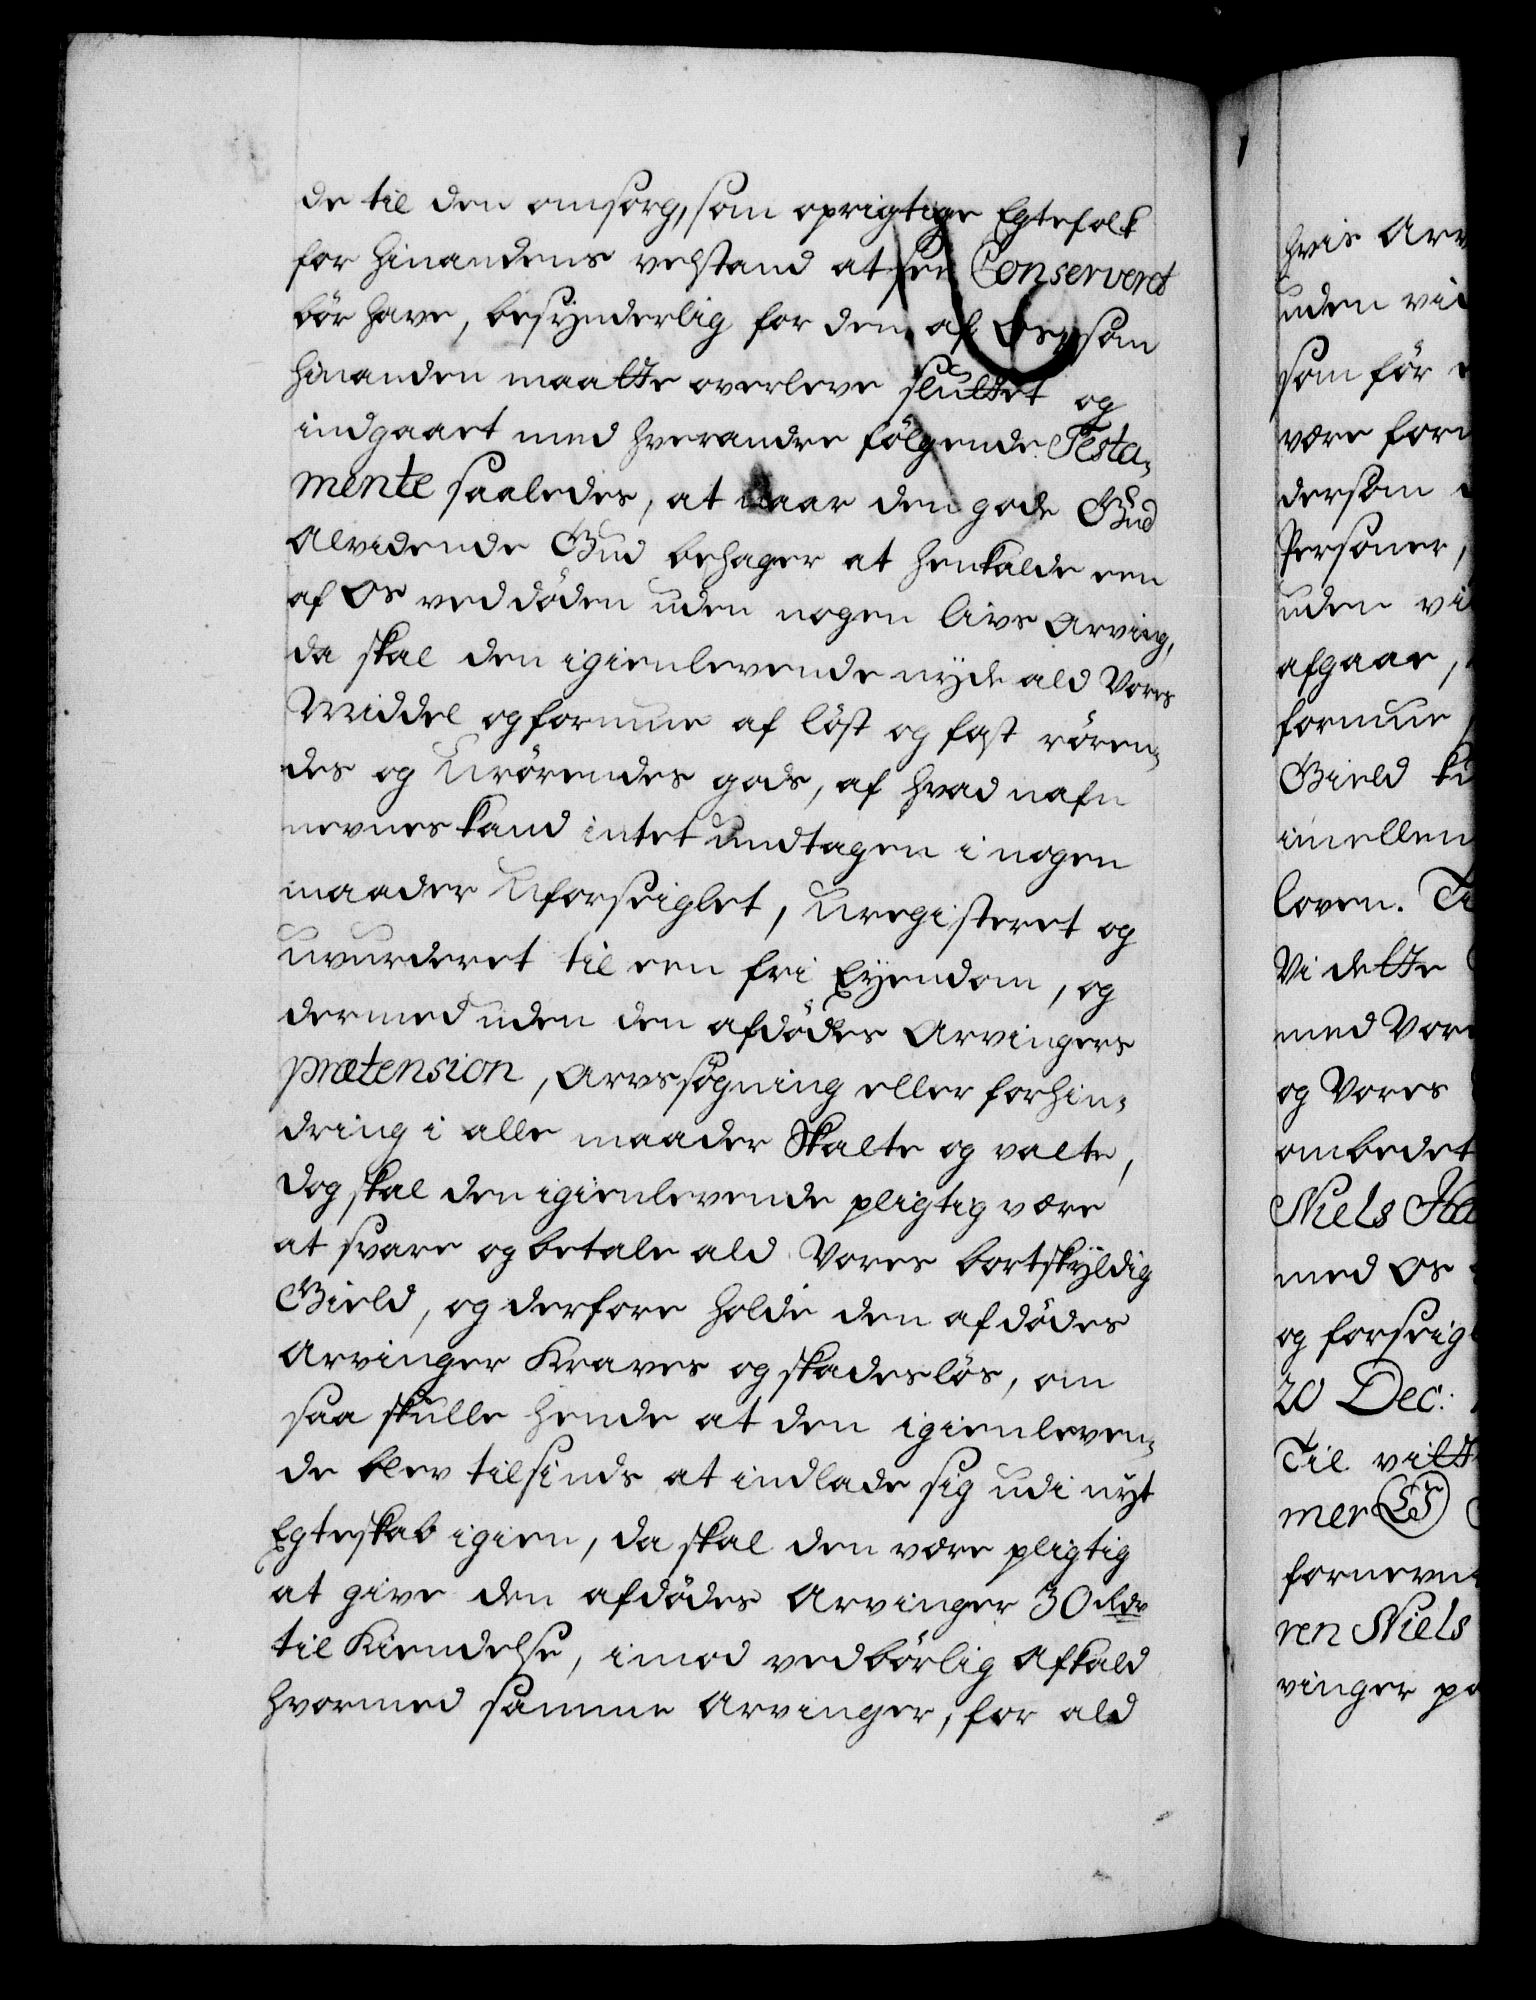 de til den omsorg, som oprigtige Egtefolk
for hinandens velstand at see Conserveret
bör have, besynderlig for den af Os, som
hinanden maatte overleve sluttet og
indgaaet med hverandre fölgende Testa-
mente saaledes, at naar den gode Gud
Alvidende Gud behager at henkalde een
af Os ved döden uden nogen livs Arving,
da skal den igienlevende nyde ald Vores
Middel og formue af löst og fast rören-
des og Urörendes gods, af hvad nafn
nevnes kand intet undtagen i nogen
maader Uforseiglet, Uregisteret og
Uvurderet til een fri Eyendom, og
dermed uden den afdödes Arvingers
prætension, Arvssögning eller forhin-
dring i alle maader Skalte og valte,
dog skal den igienlevende pligtig være
at svare og betale ald Vores bortskyldig
Gield, og derfore holde den afdödes
Arvinger Kraves og skadeslös, om
saa skulle hende at den igienleven-
de blev tilsinds at indlade sig udi nyt
Egteskab igien, da skal den være pligtig
at give den afdödes Arvinger 30 rdr
til Kiendelse, imod vedbörlig Afkald
hvormed samme Arvinger, for ald
hvis Arv
uden vid
som för
være for
dersom
Personer,
uden vi
afgaar,
formue
Gield k
imellem
loven. Ti
Vi dette
med Vor
og Vores
ombedet
Niels Ha
med Os
og forseig
20 Dec:
Til vitt
mer LS
fornevn
ren Niels
vinger pa